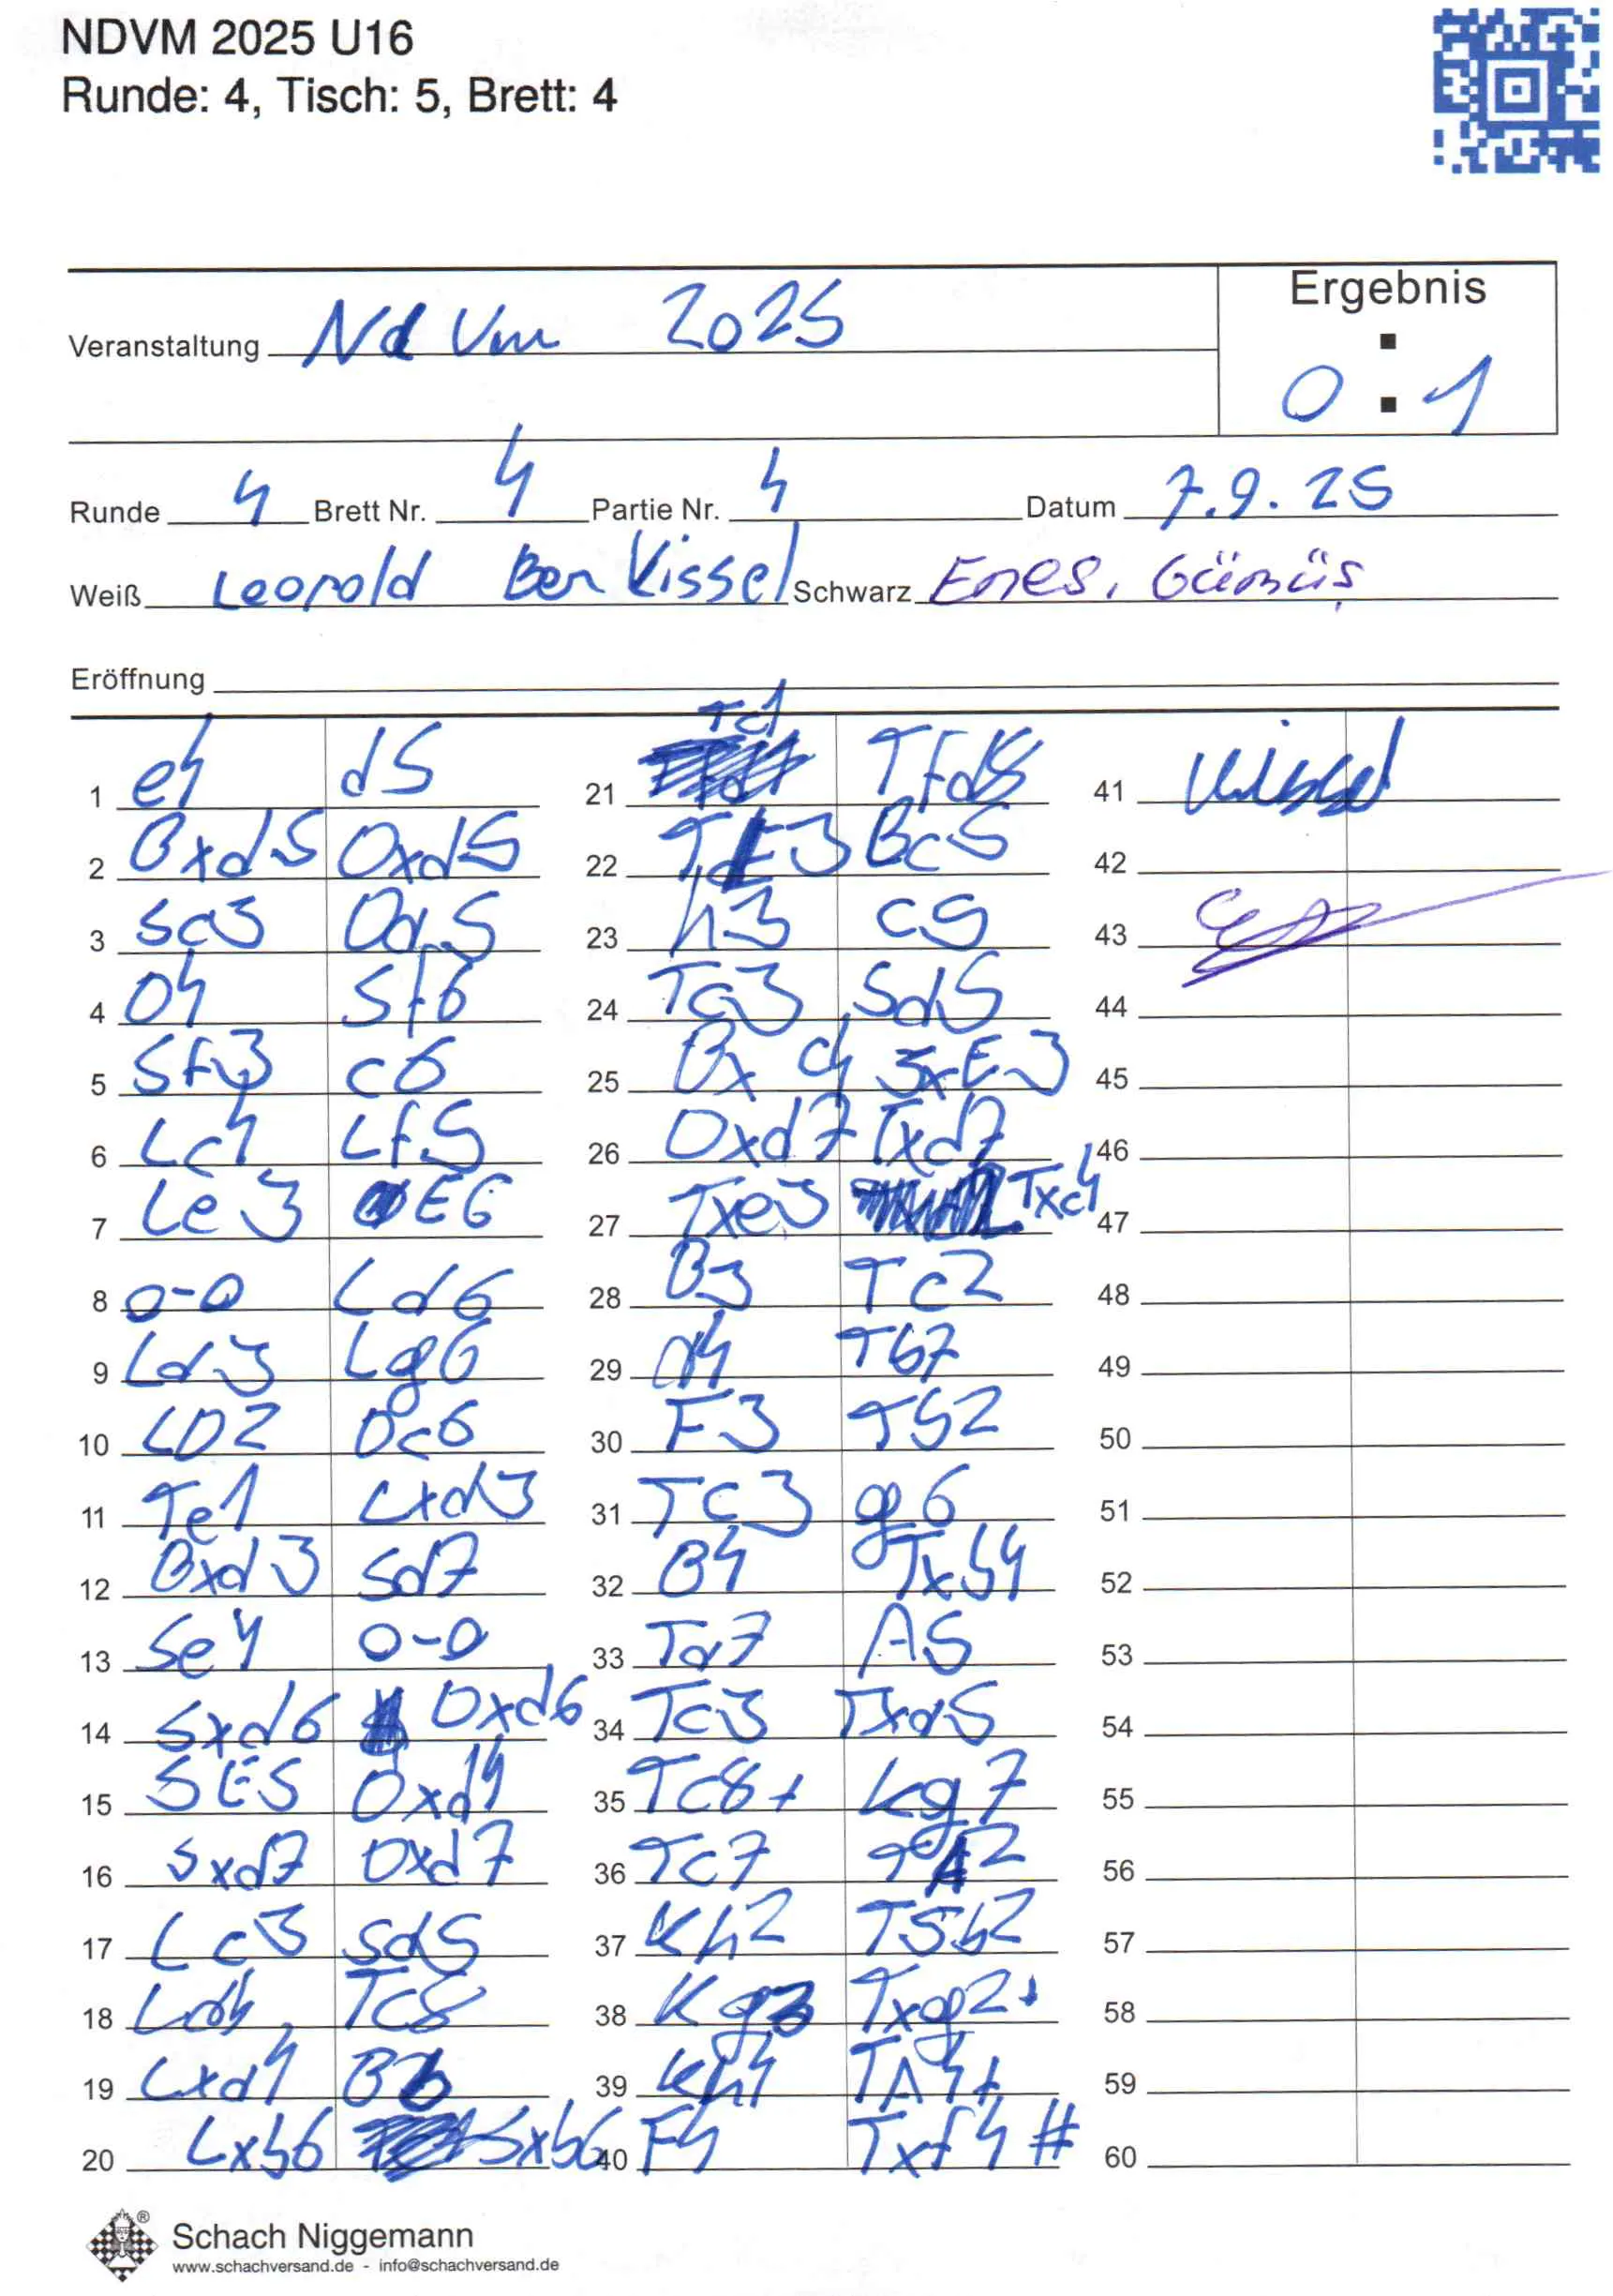 NDVM 2025 U16
Runde: 4, Tisch: 5, Brett: 4
Ergebnis
Veranstaltung Nd Vm 2025
0 : 1
Runde 4 Brett Nr. 4 Partie Nr. 4 Datum 7.9.25
Weiß Leopold Ben Kissel Schwarz Enes. Gümüş
Eröffnung
1 e4 d5
2 Bxd5 Dxd5
3 Sc3 Da5
4 D4 Sf6
5 Sf3 c6
6 Lc4 Lf5
7 Le3 E6
8 0-0 Ld6
9 Ld3 Lg6
10 LD2 Dc6
11 Te1 Lxd3
12 Bxd3 Sd7
13 Se4 0-0
14 Sxd6 Dxd6
15 SE5 Dxd4
16 Sxd7 Dxd7
17 Lc3 Sd5
18 Ld4 Tc8
19 Lxd4 B6
20 Lxb6 Sxb6
21 Tc1 Tfd8
22 TE3 Bc5
23 h3 c5
24 Ta3 Sd5
25 Bx c4 SxE3
26 Dxd7 Txd7
27 Txe3 Txc4
28 B3 Tc2
29 a4 Tb7
30 F3 Tb2
31 Tc3 g6
32 B4 Txb4
33 Ta7 A5
34 Tc3 Txa5
35 Tc8+ Kg7
36 Tc7 TA2
37 Kh2 T5b2
38 Kg3 Txg2+
39 Kh4 TA4+
40 F4 Txf4 #
41 Kissel
42
43
44
45
46
47
48
49
50
51
52
53
54
55
56
57
58
59
60
Schach Niggemann
www.schachversand.de - info@schachversand.de